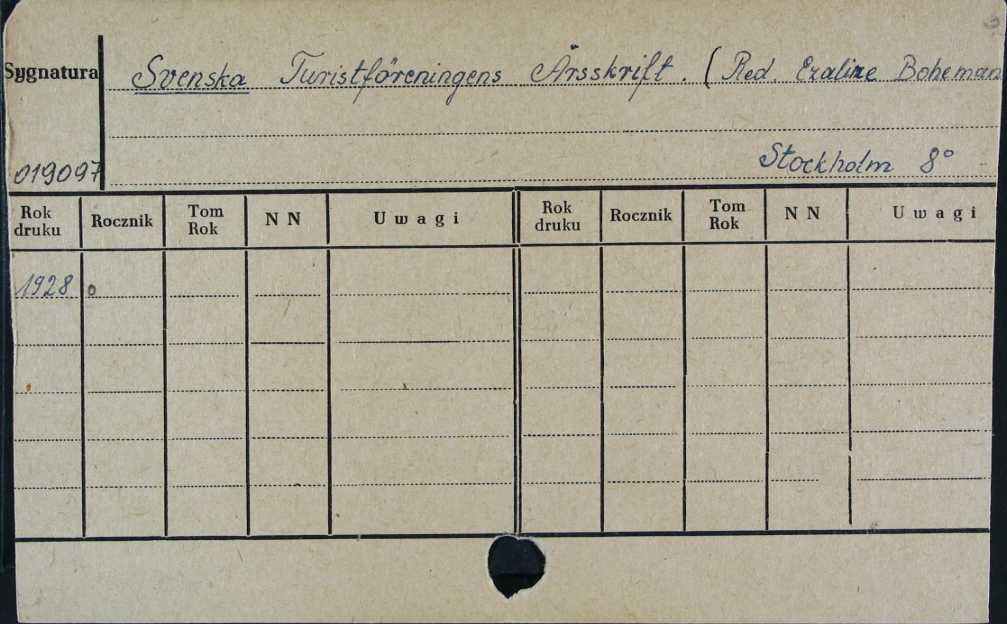 Sygnatura
Svenska Turistföreningens Årsskrift. (Red. Ezaline Boheman
019097
Stockholm 8°
Rok druku Rocznik Tom Rok N N Uwagi Rok druku Rocznik Tom Rok N N Uwagi
1928 o